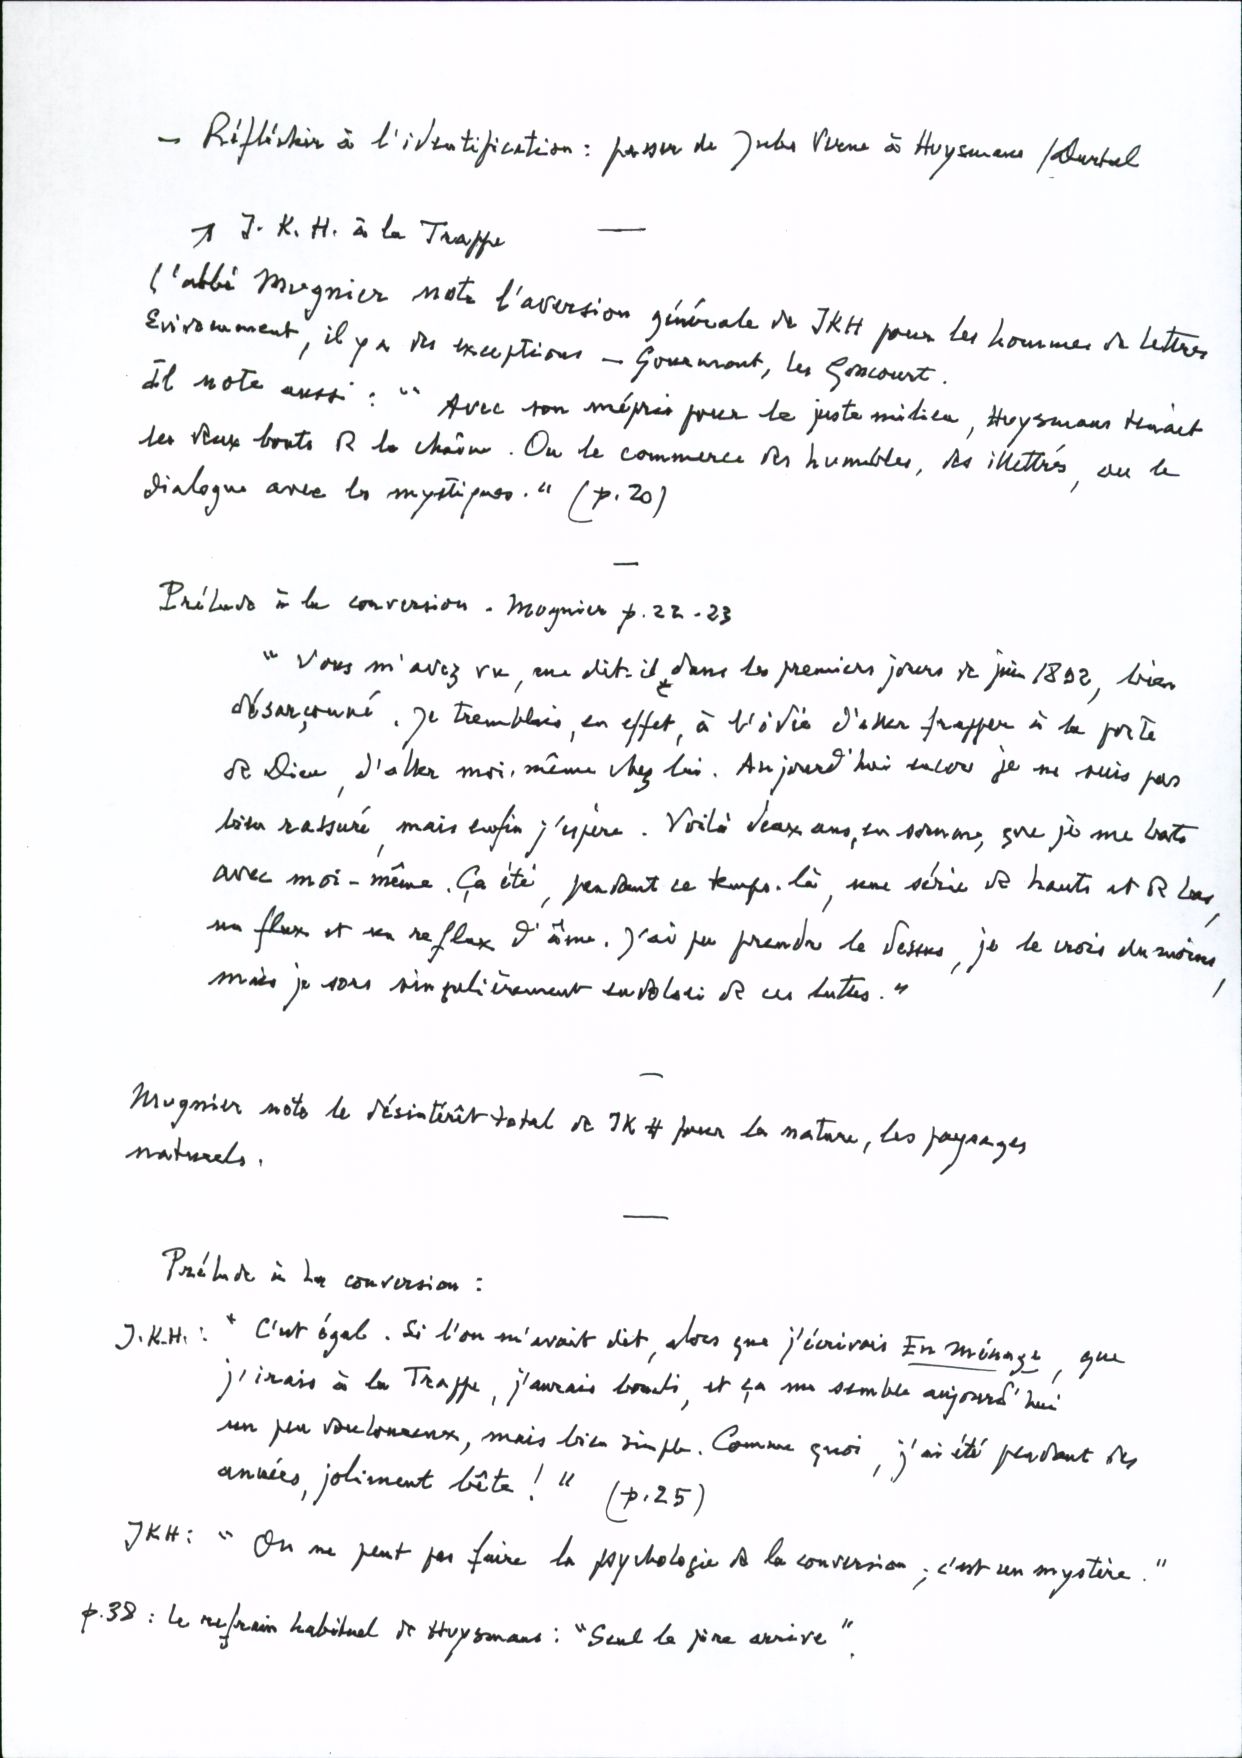 – Réfléchir à l'identification : passer de Jules Verne à Huysmans / Durtal
↗ J. K. H. à la Trappe
L'abbé Mugnier note l'aversion générale de JKH pour les hommes de lettres
Evidemment, il y a des exceptions – Gourmont, les Goncourt.
Il note aussi : " Avec son mépris pour le juste milieu, Huysmans tenait
les deux bouts de la chaîne. Ou le commerce des humbles, des illettrés, ou le
dialogue avec les mystiques. " (p. 20)
Prélude à la conversion - Mugnier p. 22-23
" Vous m'avez vu, me dit-il, dans les premiers jours de juin 1892, bien
désarçonné. Je tremblais, en effet, à l'idée d'aller frapper à la porte
de Dieu, d'aller moi-même chez lui. Aujourd'hui encore je ne suis pas
bien rassuré, mais enfin j'espère. Voilà deux ans, en somme, que je me bats
avec moi-même. Ça été, pendant ce temps-là, une série de hauts et de bas,
un flux et un reflux d'âme. J'ai pu prendre le dessus, je le crois du moins,
mais je sors singulièrement endolori de ces luttes. "
Mugnier note le désintérêt total de JKH pour la nature, les paysages
naturels.
Prélude à la conversion :
J.K.H. : " C'est égal. Si l'on m'avait dit, alors que j'écrivais En ménage, que
j'irais à la Trappe, j'aurais bondi, et ça me semble aujourd'hui
un peu douloureux, mais bien simple. Comme quoi, j'ai été pendant des
années, joliment bête ! " (p. 25)
JKH : " On ne peut pas faire la psychologie de la conversion ; c'est un mystère. "
p. 38 : le refrain habituel de Huysmans : "Seul le pire arrive".